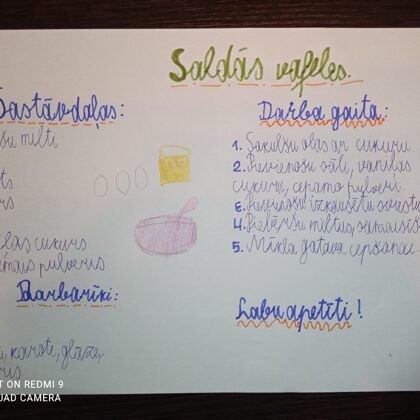 Saldās vafeles.
Sastāvdaļas:
milti
cukurs
pulveris
Darbarīki:
karote, glāze,
Darba gaita:
1. Sakulšu olas ar cukuru
2. Pievienošu sāli, vaniļas
cukuru, cepamo pulveri.
3. Pievienošu izkausētu
4. Piebēršu miltus,
5. Mīkla gatava
Labu apetīti!
T ON REDMI 9
UAD CAMERA